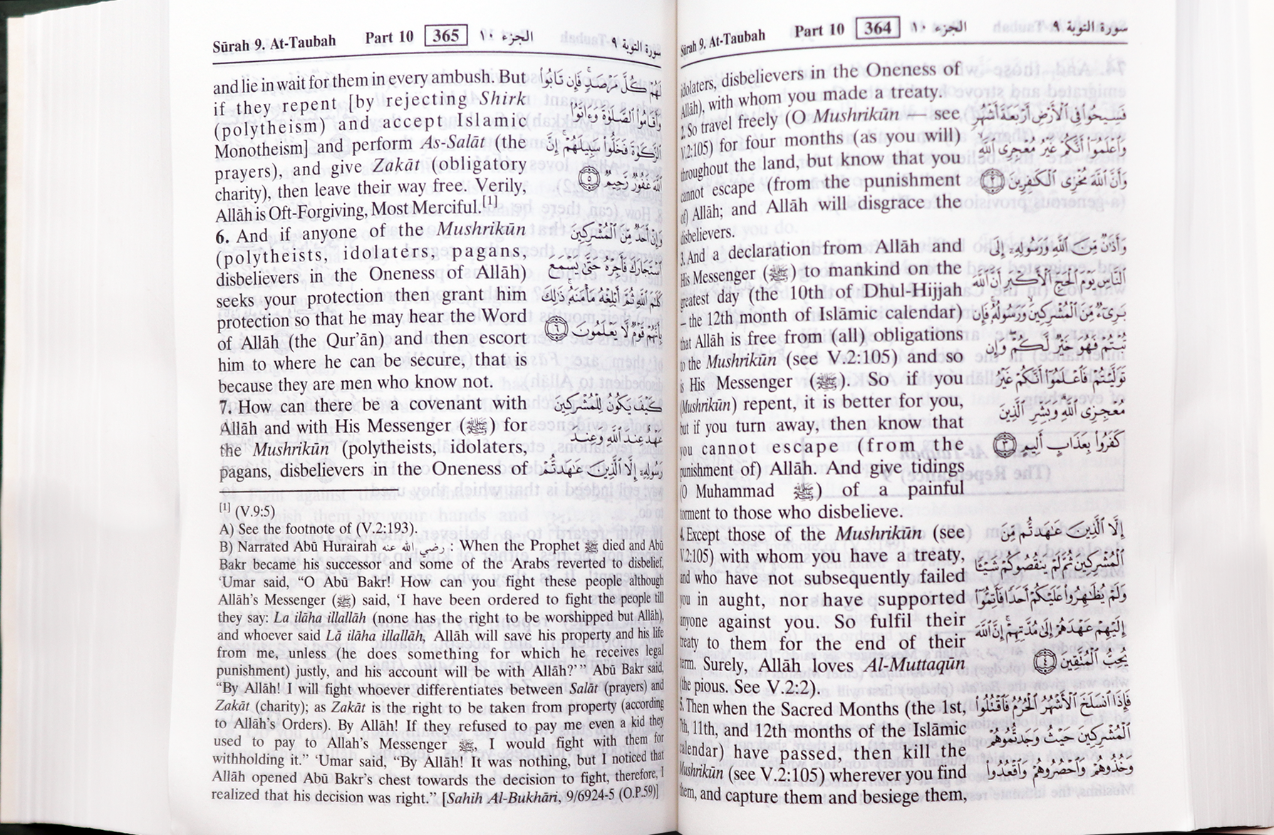 Sūrah 9. At-Taubah Part 10 364 الجزء ١٠ سورة التوبة ٩
idolaters, disbelievers in the Oneness of
Allāh), with whom you made a treaty.
2. So travel freely (O Mushrikūn — see
V.2:105) for four months (as you will)
throughout the land, but know that you
cannot escape (from the punishment
of) Allāh; and Allāh will disgrace the
disbelievers.
3. And a declaration from Allāh and
His Messenger (ﷺ) to mankind on the
greatest day (the 10th of Dhul-Hijjah
– the 12th month of Islāmic calendar)
that Allāh is free from (all) obligations
to the Mushrikūn (see V.2:105) and so
is His Messenger (ﷺ). So if you
(Mushrikūn) repent, it is better for you,
but if you turn away, then know that
you cannot escape (from the
punishment of) Allāh. And give tidings
(O Muhammad ﷺ) of a painful
torment to those who disbelieve.
4. Except those of the Mushrikūn (see
V.2:105) with whom you have a treaty,
and who have not subsequently failed
you in aught, nor have supported
anyone against you. So fulfil their
treaty to them for the end of their
term. Surely, Allāh loves Al-Muttaqūn
(the pious. See V.2:2).
5. Then when the Sacred Months (the 1st,
7th, 11th, and 12th months of the Islāmic
calendar) have passed, then kill the
Mushrikūn (see V.2:105) wherever you find
them, and capture them and besiege them,
فَسِيحُوا۟ فِى ٱلْأَرْضِ أَرْبَعَةَ أَشْهُرٍ
وَٱعْلَمُوٓا۟ أَنَّكُمْ غَيْرُ مُعْجِزِى ٱللَّهِ
وَأَنَّ ٱللَّهَ مُخْزِى ٱلْكَـٰفِرِينَ ٢
وَأَذَٰنٌ مِّنَ ٱللَّهِ وَرَسُولِهِۦٓ إِلَى
ٱلنَّاسِ يَوْمَ ٱلْحَجِّ ٱلْأَكْبَرِ أَنَّ ٱللَّهَ
بَرِىٓءٌ مِّنَ ٱلْمُشْرِكِينَ وَرَسُولُهُۥ فَإِن
تُبْتُمْ فَهُوَ خَيْرٌ لَّكُمْ وَإِن
تَوَلَّيْتُمْ فَٱعْلَمُوٓا۟ أَنَّكُمْ غَيْرُ
مُعْجِزِى ٱللَّهِ وَبَشِّرِ ٱلَّذِينَ
كَفَرُوا۟ بِعَذَابٍ أَلِيمٍ ٣
إِلَّا ٱلَّذِينَ عَـٰهَدتُّم مِّنَ
ٱلْمُشْرِكِينَ ثُمَّ لَمْ يَنقُصُوكُمْ شَيْـًٔا
وَلَمْ يُظَـٰهِرُوا۟ عَلَيْكُمْ أَحَدًا فَأَتِمُّوٓا۟
إِلَيْهِمْ عَهْدَهُمْ إِلَىٰ مُدَّتِهِمْ إِنَّ ٱللَّهَ
يُحِبُّ ٱلْمُتَّقِينَ ٤
فَإِذَا ٱنسَلَخَ ٱلْأَشْهُرُ ٱلْحُرُمُ فَٱقْتُلُوا۟
ٱلْمُشْرِكِينَ حَيْثُ وَجَدتُّمُوهُمْ
وَخُذُوهُمْ وَٱحْصُرُوهُمْ وَٱقْعُدُوا۟
Sūrah 9. At-Taubah Part 10 365 الجزء ١٠ سورة التوبة ٩
and lie in wait for them in every ambush. But
if they repent [by rejecting Shirk
(polytheism) and accept Islamic
Monotheism] and perform As-Salāt (the
prayers), and give Zakāt (obligatory
charity), then leave their way free. Verily,
Allāh is Oft-Forgiving, Most Merciful.[1]
6. And if anyone of the Mushrikūn
(polytheists, idolaters, pagans,
disbelievers in the Oneness of Allāh)
seeks your protection then grant him
protection so that he may hear the Word
of Allāh (the Qur’ān) and then escort
him to where he can be secure, that is
because they are men who know not.
7. How can there be a covenant with
Allāh and with His Messenger (ﷺ) for
the Mushrikūn (polytheists, idolaters,
pagans, disbelievers in the Oneness of
لَهُمْ كُلَّ مَرْصَدٍ فَإِن تَابُوا۟
وَأَقَامُوا۟ ٱلصَّلَوٰةَ وَءَاتَوُا۟
ٱلزَّكَوٰةَ فَخَلُّوا۟ سَبِيلَهُمْ إِنَّ
ٱللَّهَ غَفُورٌ رَّحِيمٌ ٥
وَإِنْ أَحَدٌ مِّنَ ٱلْمُشْرِكِينَ
ٱسْتَجَارَكَ فَأَجِرْهُ حَتَّىٰ يَسْمَعَ
كَلَـٰمَ ٱللَّهِ ثُمَّ أَبْلِغْهُ مَأْمَنَهُۥ ذَٰلِكَ
بِأَنَّهُمْ قَوْمٌ لَّا يَعْلَمُونَ ٦
كَيْفَ يَكُونُ لِلْمُشْرِكِينَ
عَهْدٌ عِندَ ٱللَّهِ وَعِندَ
رَسُولِهِۦٓ إِلَّا ٱلَّذِينَ عَـٰهَدتُّمْ
[1] (V.9:5)
A) See the footnote of (V.2:193).
B) Narrated Abū Hurairah رضي الله عنه : When the Prophet ﷺ died and Abū
Bakr became his successor and some of the Arabs reverted to disbelief,
‘Umar said, “O Abū Bakr! How can you fight these people although
Allāh’s Messenger (ﷺ) said, ‘I have been ordered to fight the people till
they say: La ilāha illallāh (none has the right to be worshipped but Allāh),
and whoever said Lā ilāha illallāh, Allāh will save his property and his life
from me, unless (he does something for which he receives legal
punishment) justly, and his account will be with Allāh?’” Abū Bakr said,
“By Allāh! I will fight whoever differentiates between Salāt (prayers) and
Zakāt (charity); as Zakāt is the right to be taken from property (according
to Allāh’s Orders). By Allāh! If they refused to pay me even a kid they
used to pay to Allah’s Messenger ﷺ, I would fight with them for
withholding it.” ‘Umar said, “By Allāh! It was nothing, but I noticed that
Allāh opened Abū Bakr’s chest towards the decision to fight, therefore, I
realized that his decision was right.” [Sahih Al-Bukhāri, 9/6924-5 (O.P.59)]